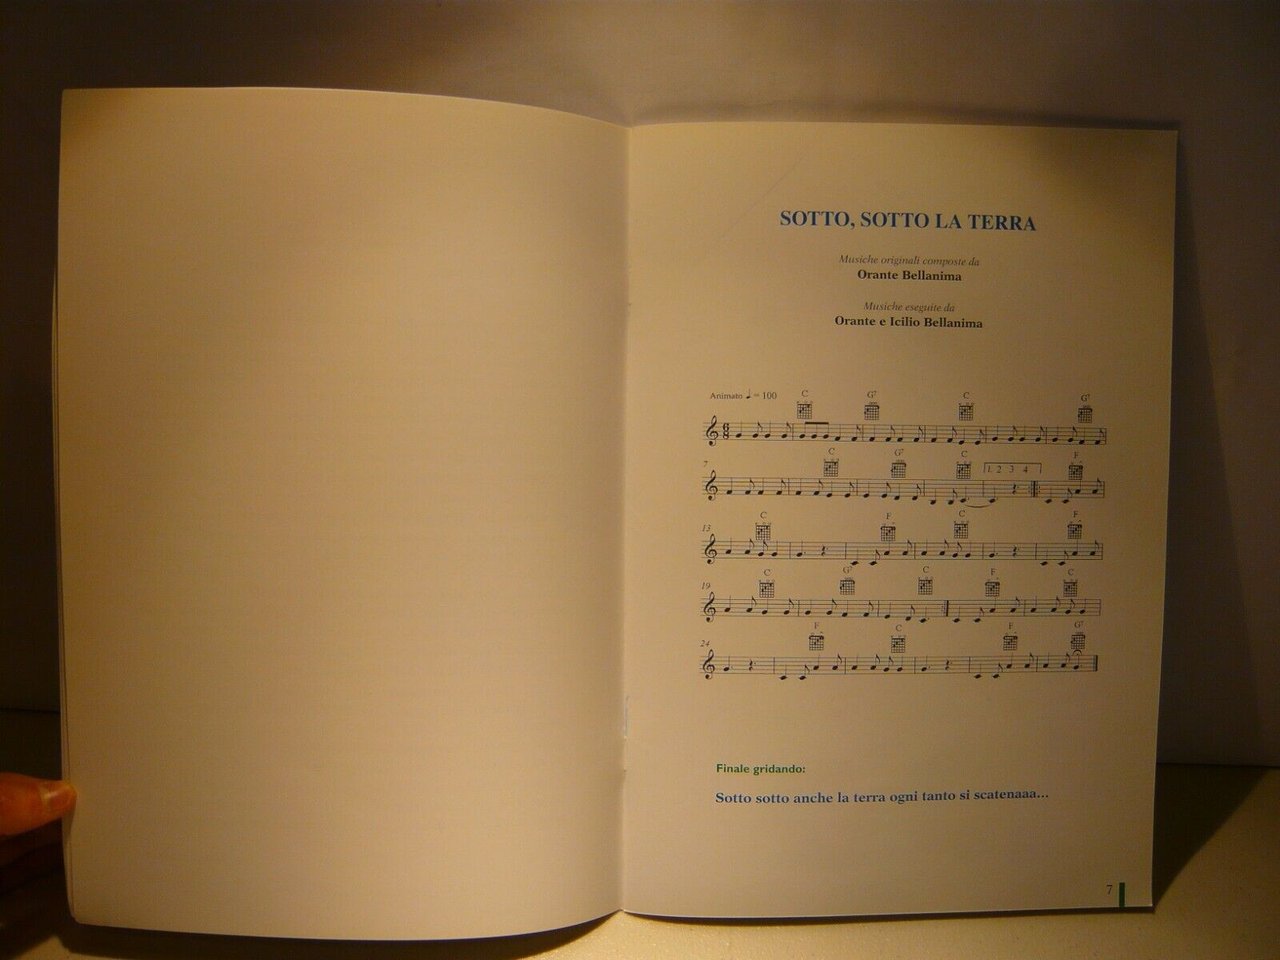 SOTTO, SOTTO LA TERRA
Musiche originali composte da
Orante Bellanima
Musiche eseguite da
Orante e Icilio Bellanima
Animato ♩ = 100
C G7 C G7
6
8
7
C G7 C F
1. 2 3 4
13
C F C F
19
C G7 C F C
24
F C F G7
Finale gridando:
Sotto sotto anche la terra ogni tanto si scatenaaa...
7